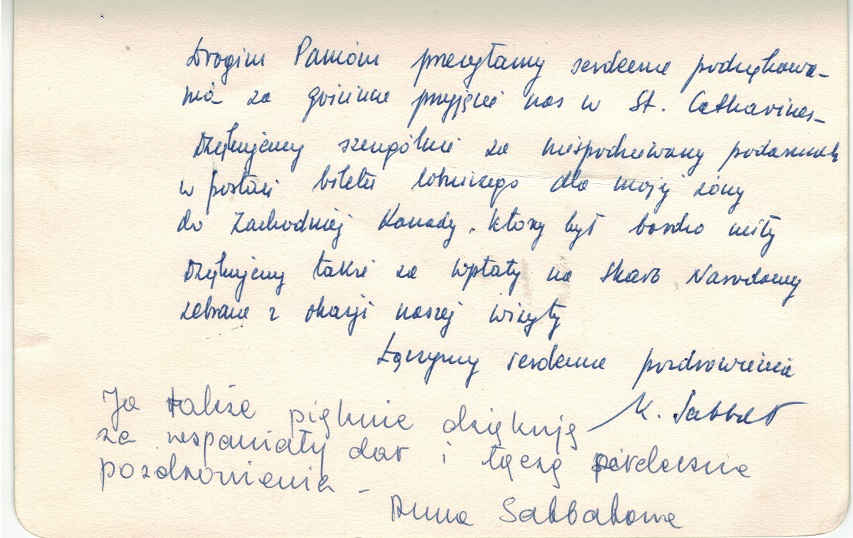 Drogim Paniom przesyłamy serdeczne podziękowa-
nia za gościnne przyjęcie nas w St. Catharines_
Dziękujemy szczególnie za niespodziewany podarunek
w postaci biletu lotniczego dla mojej żony
do Zachodniej Kanady, który był bardzo miły
Dziękujemy także za wpłaty na Skarb Narodowy
zebrane z okazji naszej wizyty
Łączymy serdeczne pozdrowienia
K. Sabbat
Ja także pięknie dziękuję
za wspaniały dar i łączę serdecznie
pozdrowienia –
Anna Sabbatowa